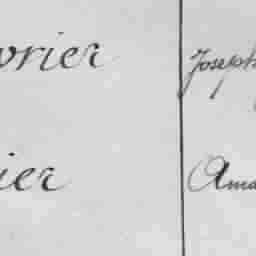 vrier Joseph
ier Ama